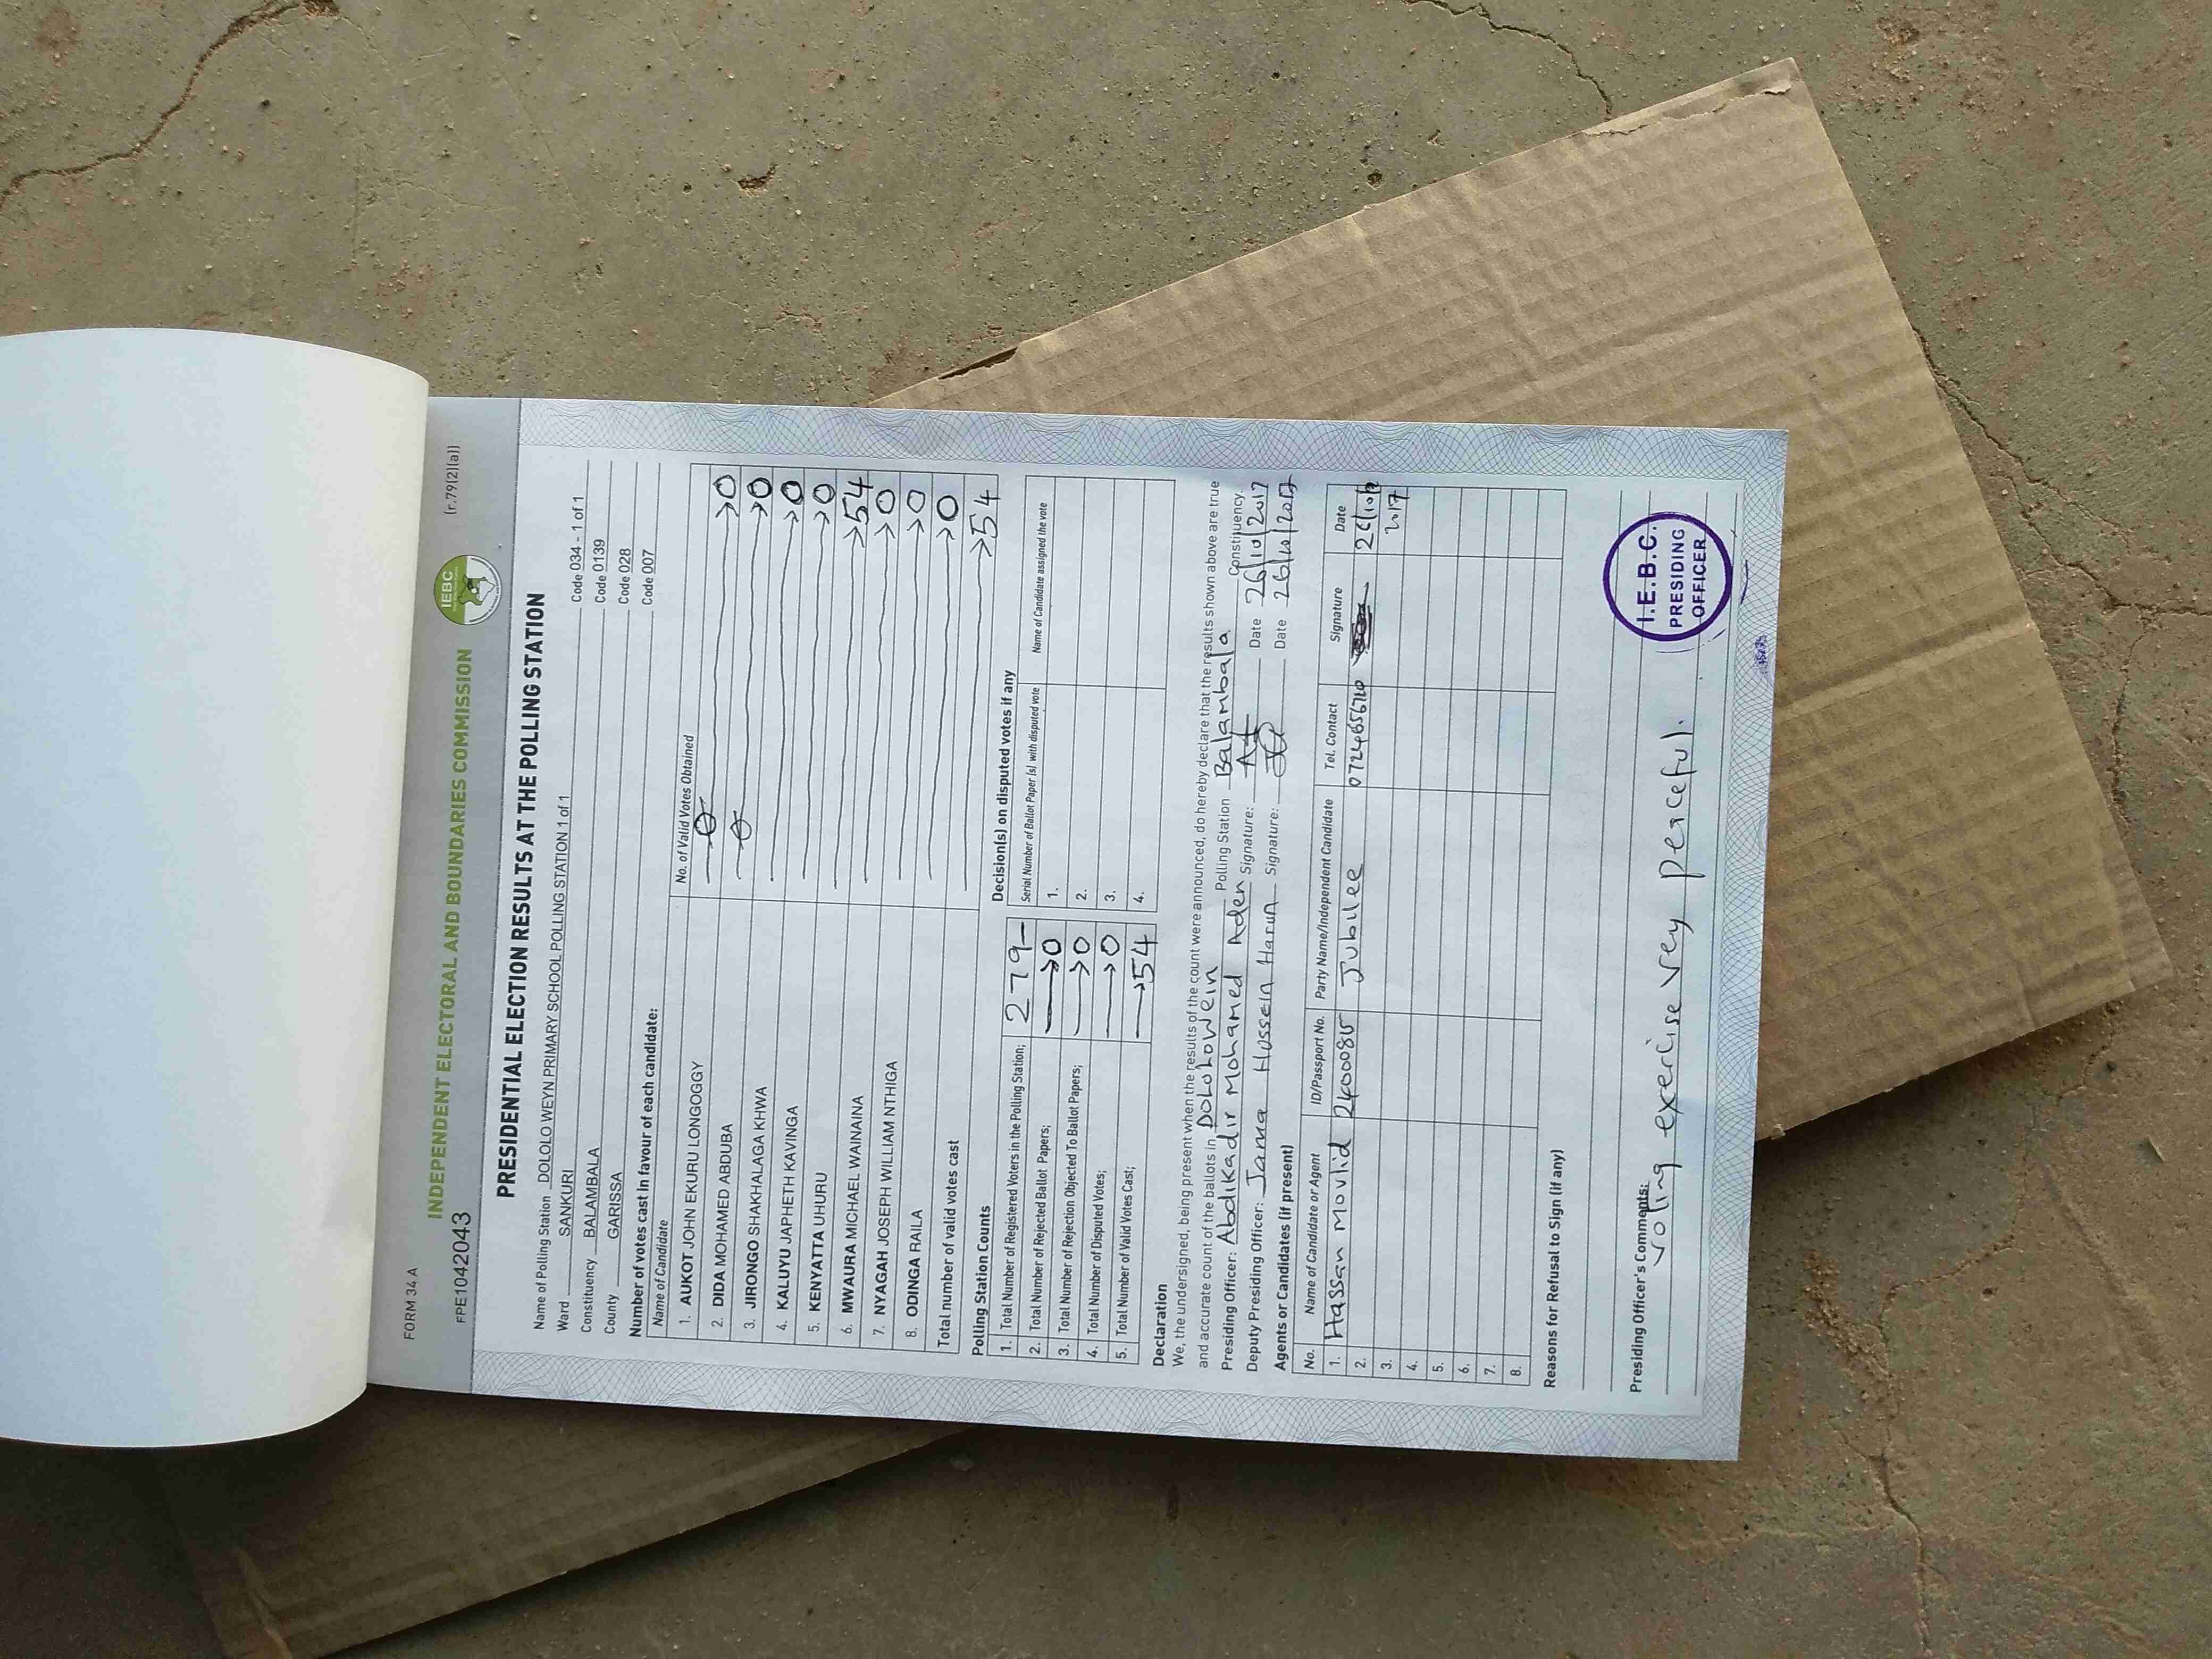 FORM 34 A
(r.79(2)(a))
FPE1042043
INDEPENDENT ELECTORAL AND BOUNDARIES COMMISSION
IEBC
PRESIDENTIAL ELECTION RESULTS AT THE POLLING STATION
Name of Polling Station DOLOLO WEYN PRIMARY SCHOOL POLLING STATION 1 of 1 Code 034 - 1 of 1
Ward SANKURI Code 0139
Constituency BALAMBALA Code 028
County GARISSA Code 007
Number of votes cast in favour of each candidate:
Name of Candidate No. of Valid Votes Obtained
1. AUKOT JOHN EKURU LONGOGGY 0
2. DIDA MOHAMED ABDUBA 0
3. JIRONGO SHAKHALAGA KHWA 0
4. KALUYU JAPHETH KAVINGA 0
5. KENYATTA UHURU 54
6. MWAURA MICHAEL WAINAINA 0
7. NYAGAH JOSEPH WILLIAM NTHIGA 0
8. ODINGA RAILA 0
Total number of valid votes cast 54
Polling Station Counts
1. Total Number of Registered Voters in the Polling Station; 279
2. Total Number of Rejected Ballot Papers; 0
3. Total Number of Rejection Objected To Ballot Papers; 0
4. Total Number of Disputed Votes; 0
5. Total Number of Valid Votes Cast; 54
Decision(s) on disputed votes if any
Serial Number of Ballot Paper (s) with disputed vote Name of Candidate assigned the vote
1.
2.
3.
4.
Declaration
We, the undersigned, being present when the results of the count were announced, do hereby declare that the results shown above are true
and accurate count of the ballots in DOLOLOWEIN Polling Station Balambala Constituency.
Presiding Officer: Abdikadir Mohamed Aden Signature: Date 26/10/2017
Deputy Presiding Officer: Jama Hussein Harun Signature: Date 26/10/2017
Agents or Candidates (if present)
No. Name of Candidate or Agent ID/Passport No. Party Name/Independent Candidate Tel. Contact Signature Date
1. Hassan Movlid 24000805 Jubilee 0724656710 26/10/
2. 2017
3.
4.
5.
6.
7.
8.
Reasons for Refusal to Sign (if any)
Presiding Officer's Comments:
voting exercise vey peaceful.
I.E.B.C.
PRESIDING
OFFICER